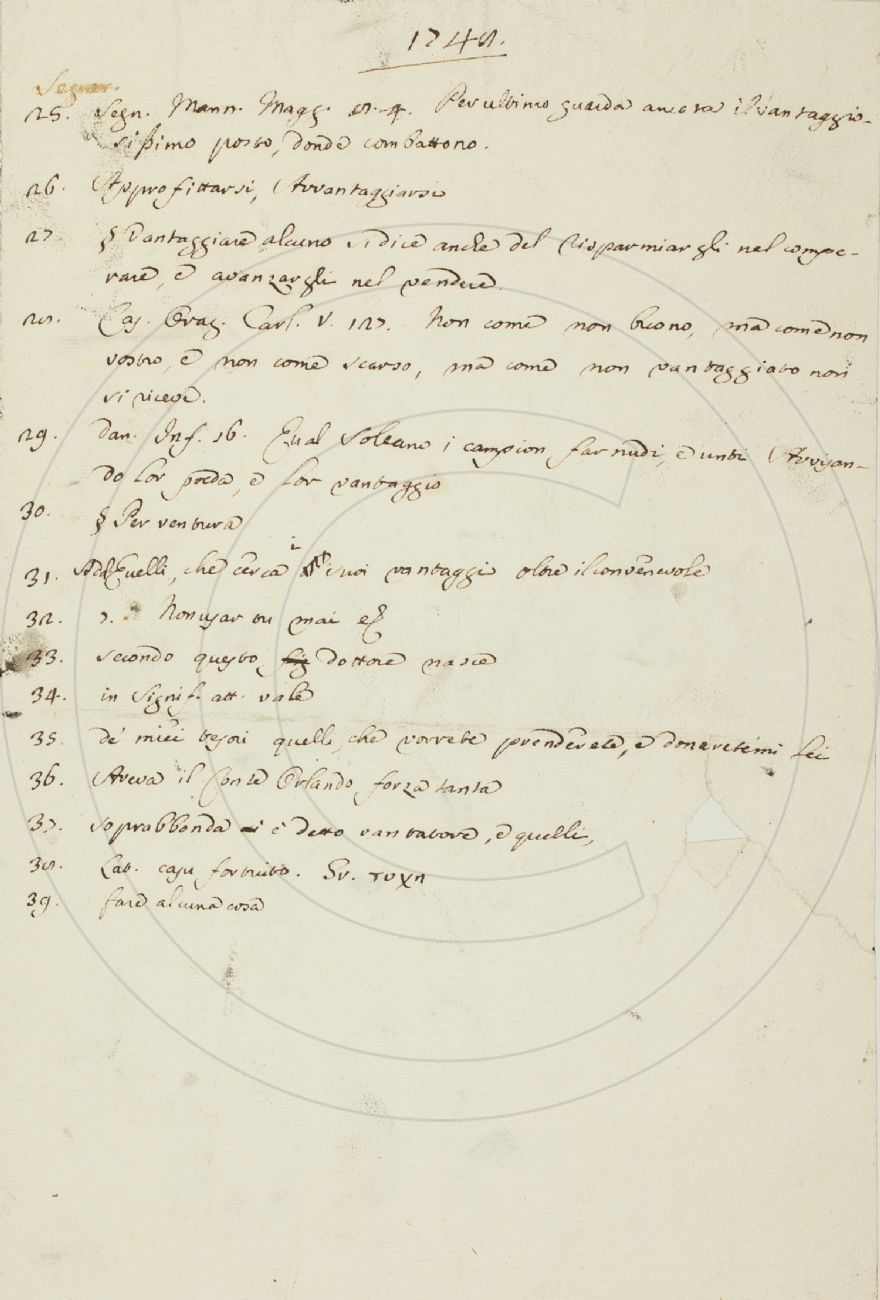 1748.
Segner.
25. Segn. Mann. Magg. 8. 4. Per ultimo guarda ancora il vantaggio-
sissimo posto, donde combattono.
26. Approfittarsi, Avvantaggiarsi
27 § Vantaggiare alcuno si dice anche del risparmiargli nel compe-
rare, e avanzargli nel vendere.
28. Cas. Oraz. Carl. V. 127. Non come non buono, ma come non
vostro, e non come scarso, ma come non vantaggiato non
si riceve.
29. Dan. Inf. 16. Qual Soleano i campion far nudi, e unti Avvisan-
do lor preda, e lor vantaggio
30. § Per ventura
31. Quelli, che cerca i suoi vantaggi oltre il convenevole
32. 7. Non usar tu mai
33. secondo questo dottore nasce
34. in Signif. att. vale
35. de' miei tesori quelli, che vorrete prenderete, e doneretemi lei
36. Aveva il Conte Orlando forza tanta
37. soprabbonda è detto vantatore, e quelli,
38. Lat. casu fortuito. Gr. τυχη
39. fare alcuna cosa